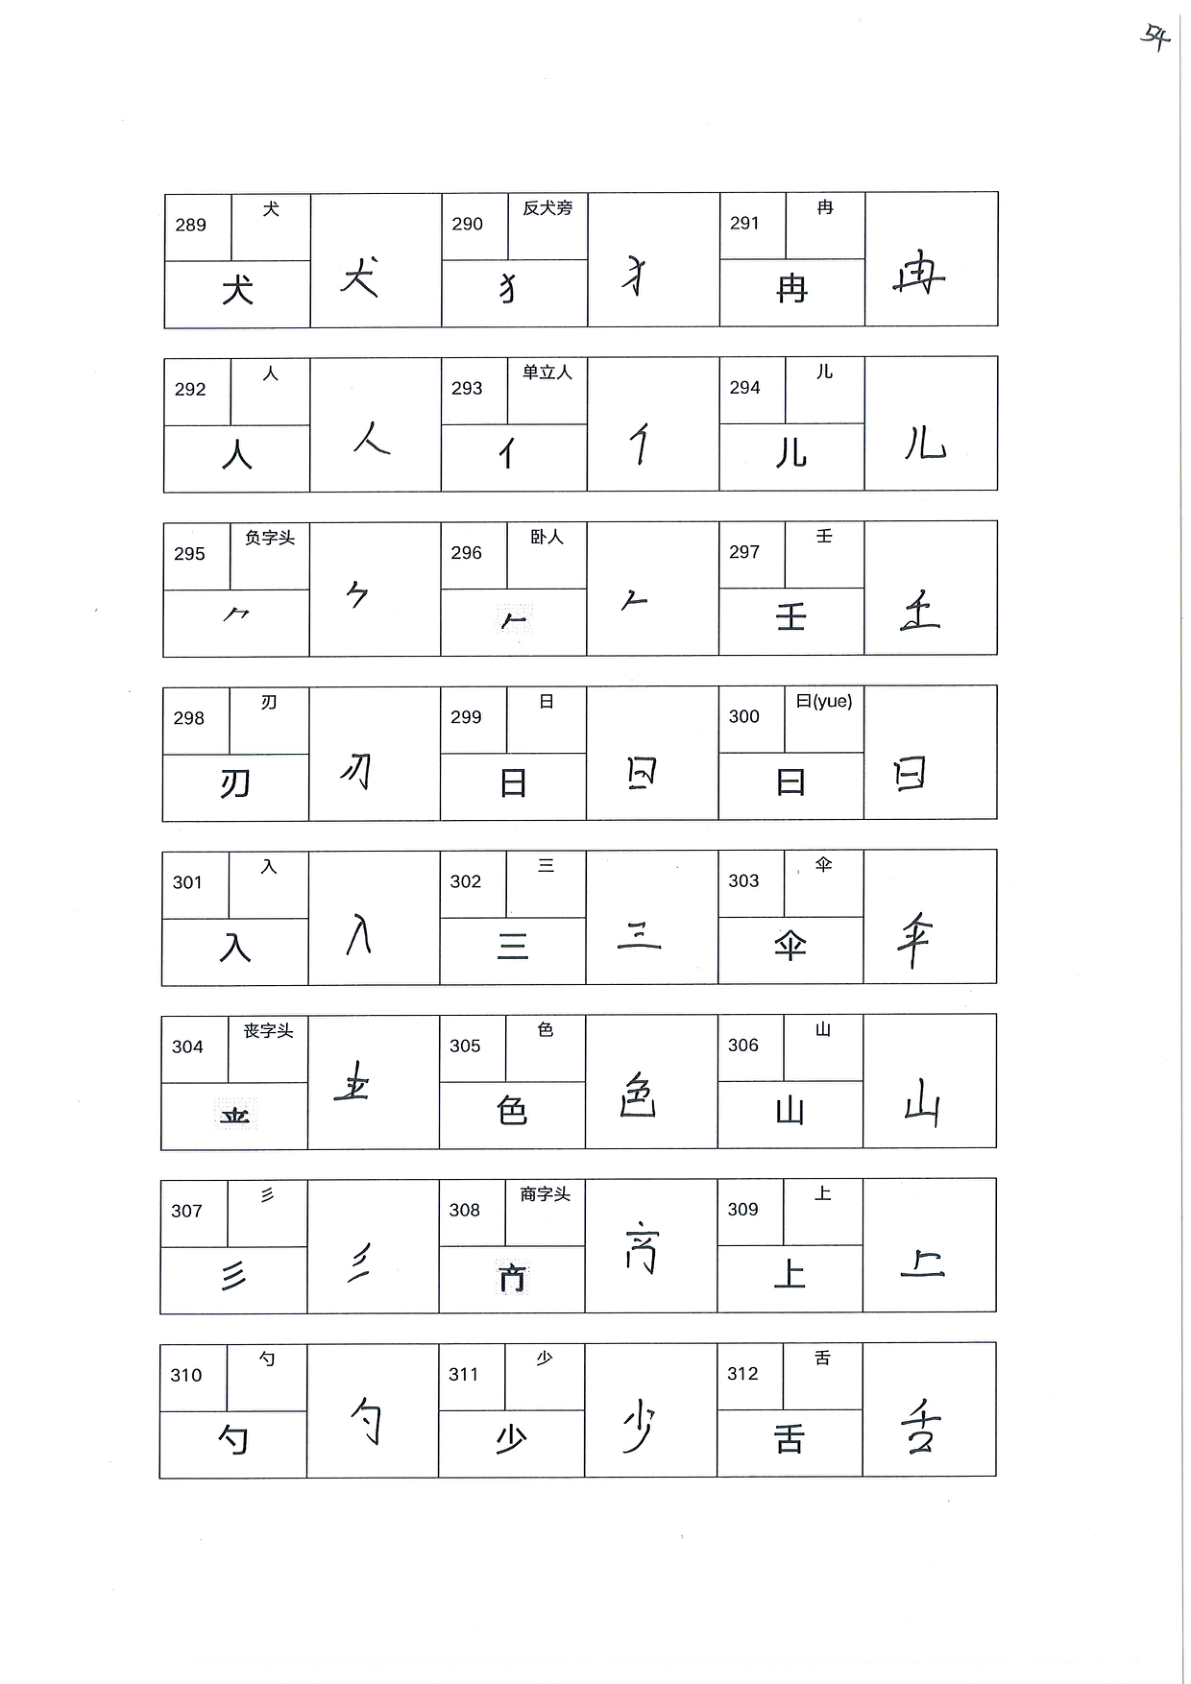 54
289 犬 犬 290 反犬旁 犭 291 冉 冉
犬 犭 冉
292 人 人 293 单立人 亻 294 儿 儿
人 亻 儿
295 负字头 𠂊 296 卧人 𠂉 297 壬 壬
𠂊 𠂉 壬
298 刃 刃 299 日 日 300 曰(yue) 曰
刃 日 曰
301 入 入 302 三 三 303 伞 伞
入 三 伞
304 丧字头 305 色 色 306 山 山
色 山
307 彡 彡 308 商字头 309 上 上
彡 上
310 勺 勺 311 少 少 312 舌 舌
勺 少 舌